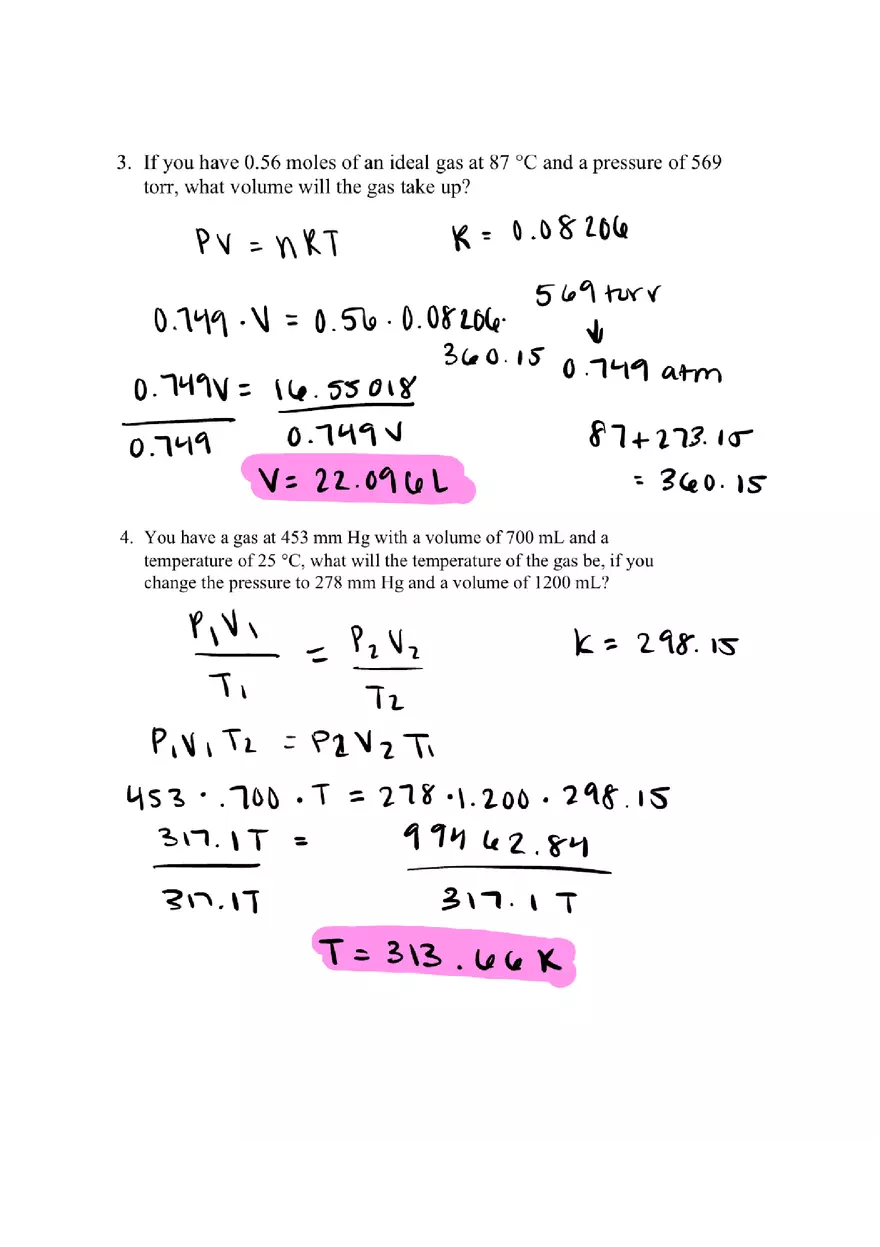 3. If you have 0.56 moles of an ideal gas at 87 °C and a pressure of 569
torr, what volume will the gas take up?
PV = nRT
R = 0.08206
569 torr
↓
0.749 atm
0.749 · V = 0.56 · 0.08206·
360.15
0.749V = 16.55018
0.749 0.749 V
87+273.15
= 360.15
V = 22.096 L
4. You have a gas at 453 mm Hg with a volume of 700 mL and a
temperature of 25 °C, what will the temperature of the gas be, if you
change the pressure to 278 mm Hg and a volume of 1200 mL?
P₁V₁ = P₂V₂
T₁ T₂
K = 298.15
P₁V₁T₂ = P2V₂T₁
453 · .700 · T = 278 · 1.200 · 298.15
317.1T = 99462.84
317.1T 317.1 T
T = 313.66 K